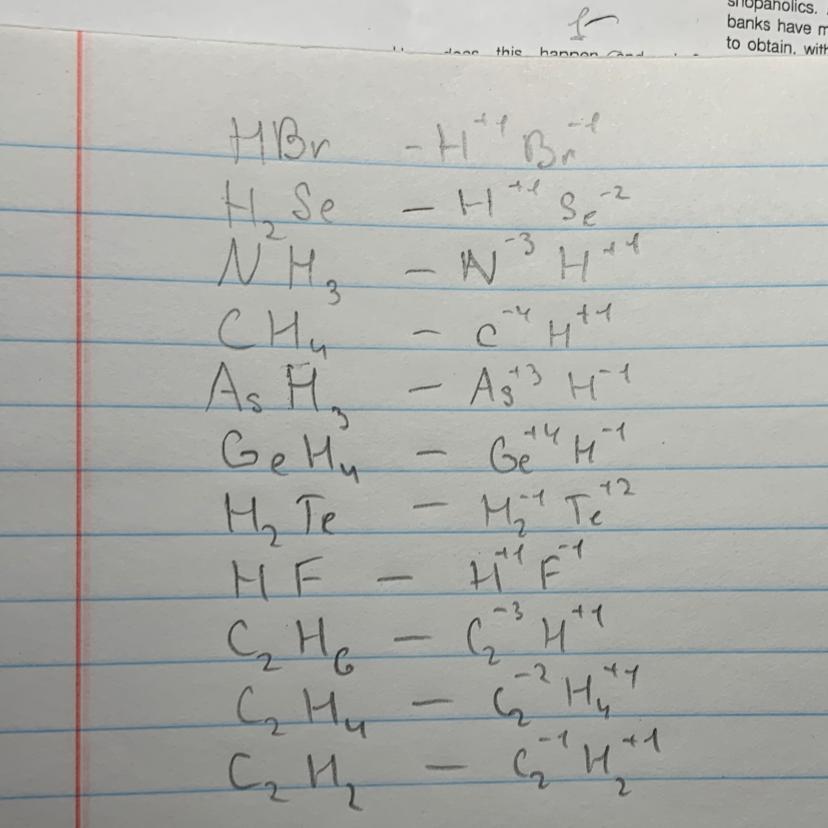 shopaholics.
banks have m
to obtain. with
does this happen
HBr - H⁺¹ Br⁻¹
H₂Se - H⁺¹ Se⁻²
NH₃ - N⁻³ H⁺¹
CH₄ - C⁻⁴ H⁺¹
AsH₃ - As⁺³ H⁻¹
GeH₄ - Ge⁺⁴ H⁻¹
H₂Te - H₂⁻¹ Te⁺²
HF - H⁺¹ F⁻¹
C₂H₆ - C₂⁻³ H⁺¹
C₂H₄ - C₂⁻² H₄⁺¹
C₂H₂ - C₂⁻¹ H₂⁺¹